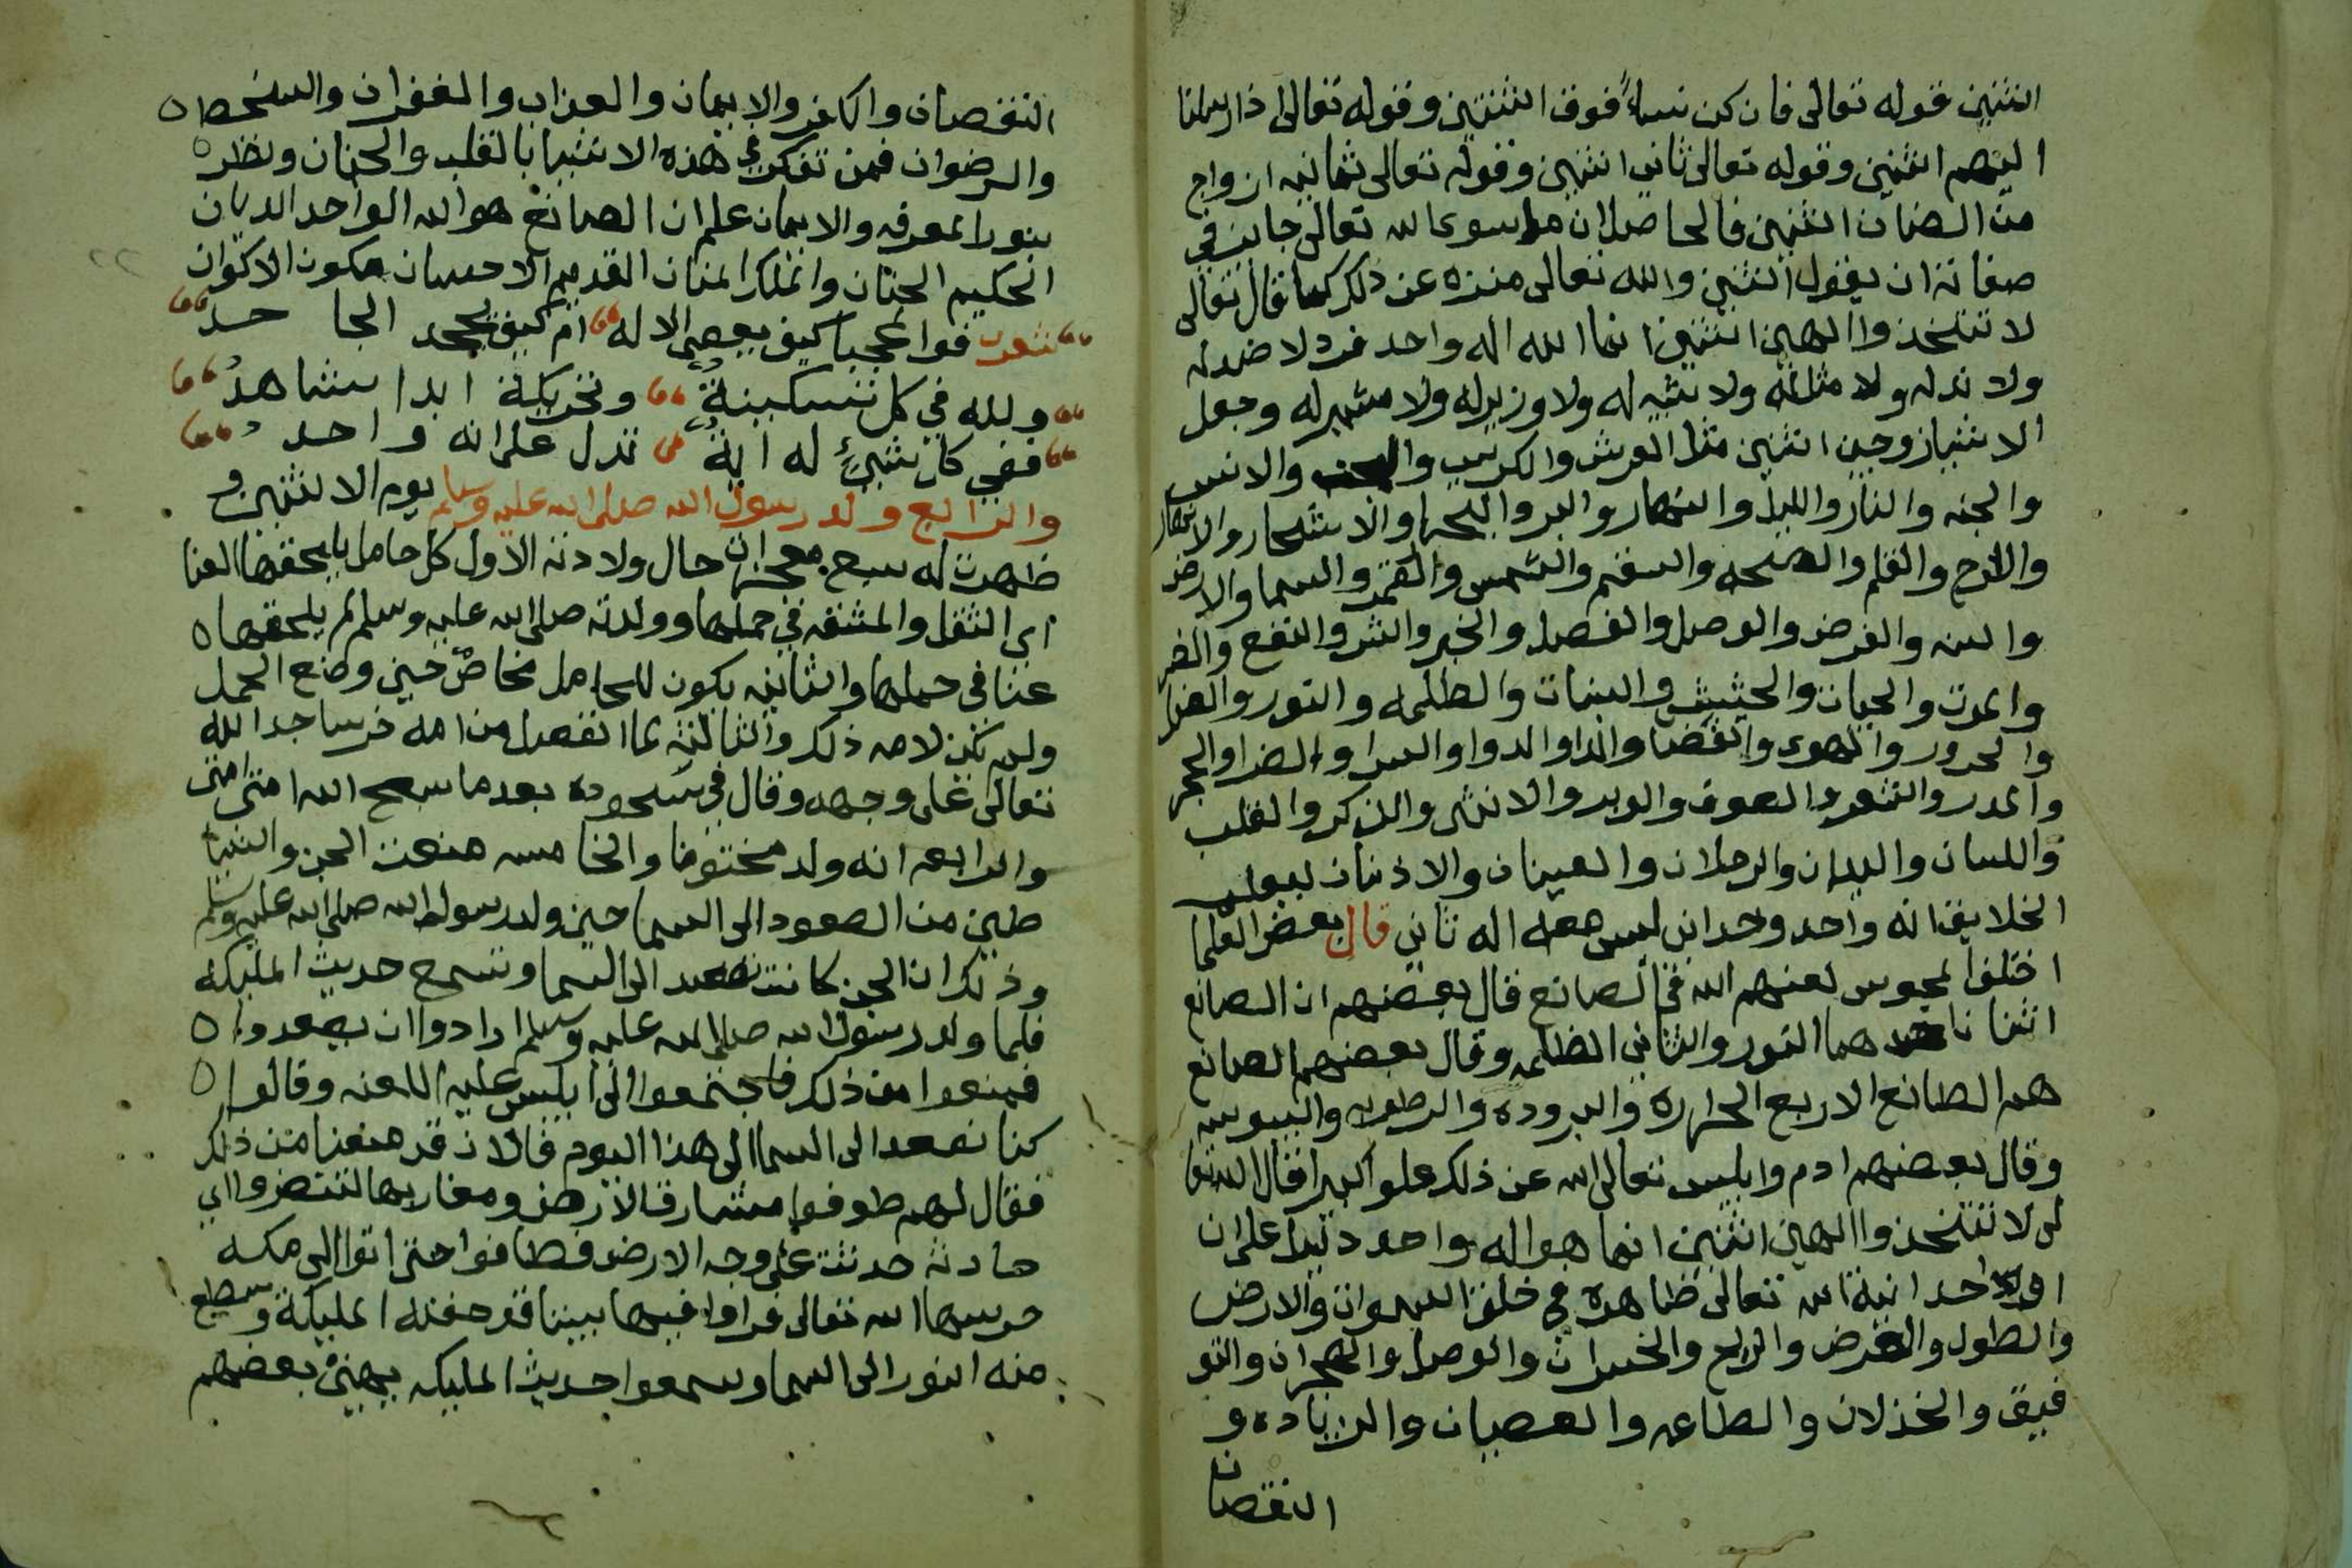 اثنين قوله تعالى فان كن نساءً فوق اثنتين وقوله تعالى اذ ارسلنا
اليهم اثنين وقوله تعالى ثاني اثنين وقوله تعالى ثمانيه ازواج
من الضان اثنين فالحاصل ان ما سوى الله تعالى جايز في
صفاته ان يقول اثنين والله تعالى منزه عن ذلك كما قال تعالى
لا تتخذوا الهين اثنين انما الله اله واحد فرد لا ضد له
ولا ند له ولا مثل له ولا شبيه له ولا وزير له ولا مشير له وجعل
الاشيا زوجين اثنين مثل العرش والكرسي والجن والانس
والجنه والنار والليل والنهار والبر والبحر والاشجار والانهار
واللوح والقلم والصحه والسقم والشمس والقمر والسما والارض
والسنه والفرض والوصل والفصل والخير والشر والنفع والضر
والموت والحيات والحشيش والنبات والظلمه والنور والظل
والحرور والهوى والفضا والدا والدوا والسرا والضرا والحجر
والمدر والشعر والصوف والوبر والانثى والذكر والقلب
واللسان واليدان والرجلان والعينان والاذنان ليعلم
الخلايق انه واحد وحداني ليس معه اله ثاني قال بعض العلما
اختلفوا المجوس لعنهم الله في الصانع قال بعضهم ان الصانع
اثنان احدهما النور والثاني الظلمه وقال بعضهم الصانع
هم الطبائع الاربع الحراره والبروده والرطوبه واليبوسه
وقال بعضهم ادم وابليس تعالى الله عن ذلك علوا كبيرا فقال الله تعا
لى لا تتخذوا الهين اثنين انما هو اله واحد دليل على ان
وحدانية الله تعالى ظاهره في خلق السموات والارض
والطول والعرض والربح والخسران والوصل والهجران والتو
فيق والخذلان والطاعه والعصيان والزياده و
النقصان
النقصان والكفر والايمان والعذاب والغفران والسخط
والرضوان فمن تفكر في هذه الاشيا بالقلب والجنان ونظر
بنور المعرفه والايمان علم ان الصانع هو الله الواحد الديان
الحكيم الحنان والملك المنان القديم الاحسان مكون الاكوان
شعر فوا عجبا كيف يعصى الاله ام كيف يجحد الجا حد
ولله في كل تسكينةٍ وتحريكة ابدا شاهدُ
ففي كل شيءٍ له ايةٌ تدل على انه واحد
والرابع ولد رسول الله صلى الله عليه وسلم يوم الاثنين و
ظهرت له سبع معجزات حال ولادته الاول كل حامل يلحقها العنا
اي الثقل والمشقه في حملها ووالدته صلى الله عليه وسلم لم يلحقها
عنا في حملها والثانيه يكون للحامل مخاض حين وضع الحمل
ولم يكن لامه ذلك والثالثه لما انفصل من امه خر ساجدا لله
تعالى على وجهه وقال في سجوده بعد ما سبح الله امتي امتي
والرابعه انه ولد مختونا والخامسه منعت الجن والشيا
طين من الصعود الى السما حين ولد رسول الله صلى الله عليه وسلم
وذلك ان الجن كانت تصعد الى السما وتسمع حديث المليكة
فلما ولد رسول الله صلى الله عليه وسلم ارادوا ان يصعدوا
فمنعوا من ذلك فاجتمعوا الى ابليس عليه اللعنه وقالوا
كنا نصعد الى السما الى هذا اليوم فالان قد منعنا من ذلك
فقال لهم طوفوا مشارق الارض ومغاربها لتنضروا اي
حادثه حدثت على وجه الارض فطافوا حتى اتوا الى مكه
حرسها الله تعالى فراوا فيها بيتا قد حفته المليكة وسطع
منه النور الى السما وسمعوا حديث المليكه يهني بعضهم